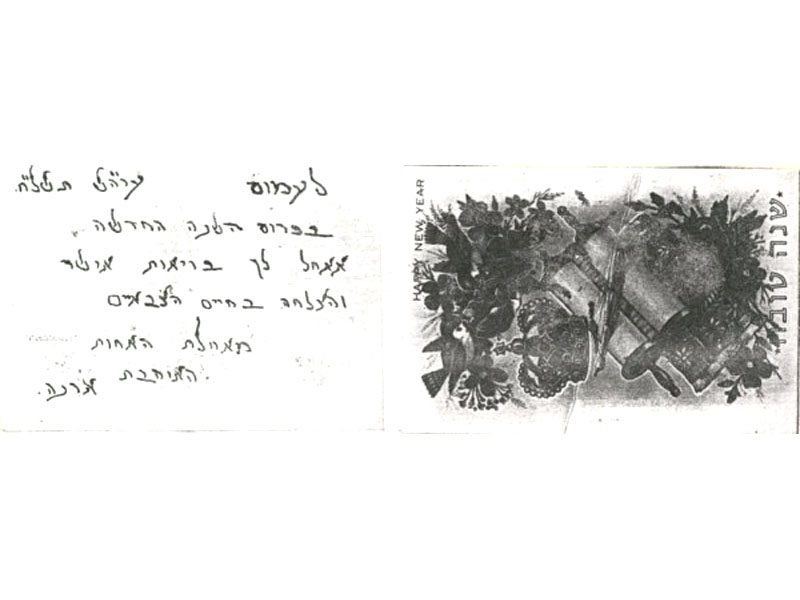 לעמוס ערה"ש תשל"ח.
בפרוס השנה החדשה
אאחל לך בריאות אושר
והצלחה בחיים הצבאיים
מאחלת האחות
האוהבת אורנה.
HAPPY NEW YEAR
שנה טובה